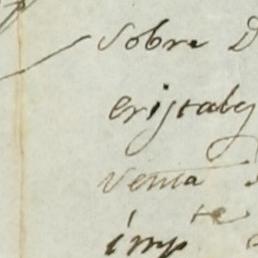 Sobre D
cristaly
venta
imp.te